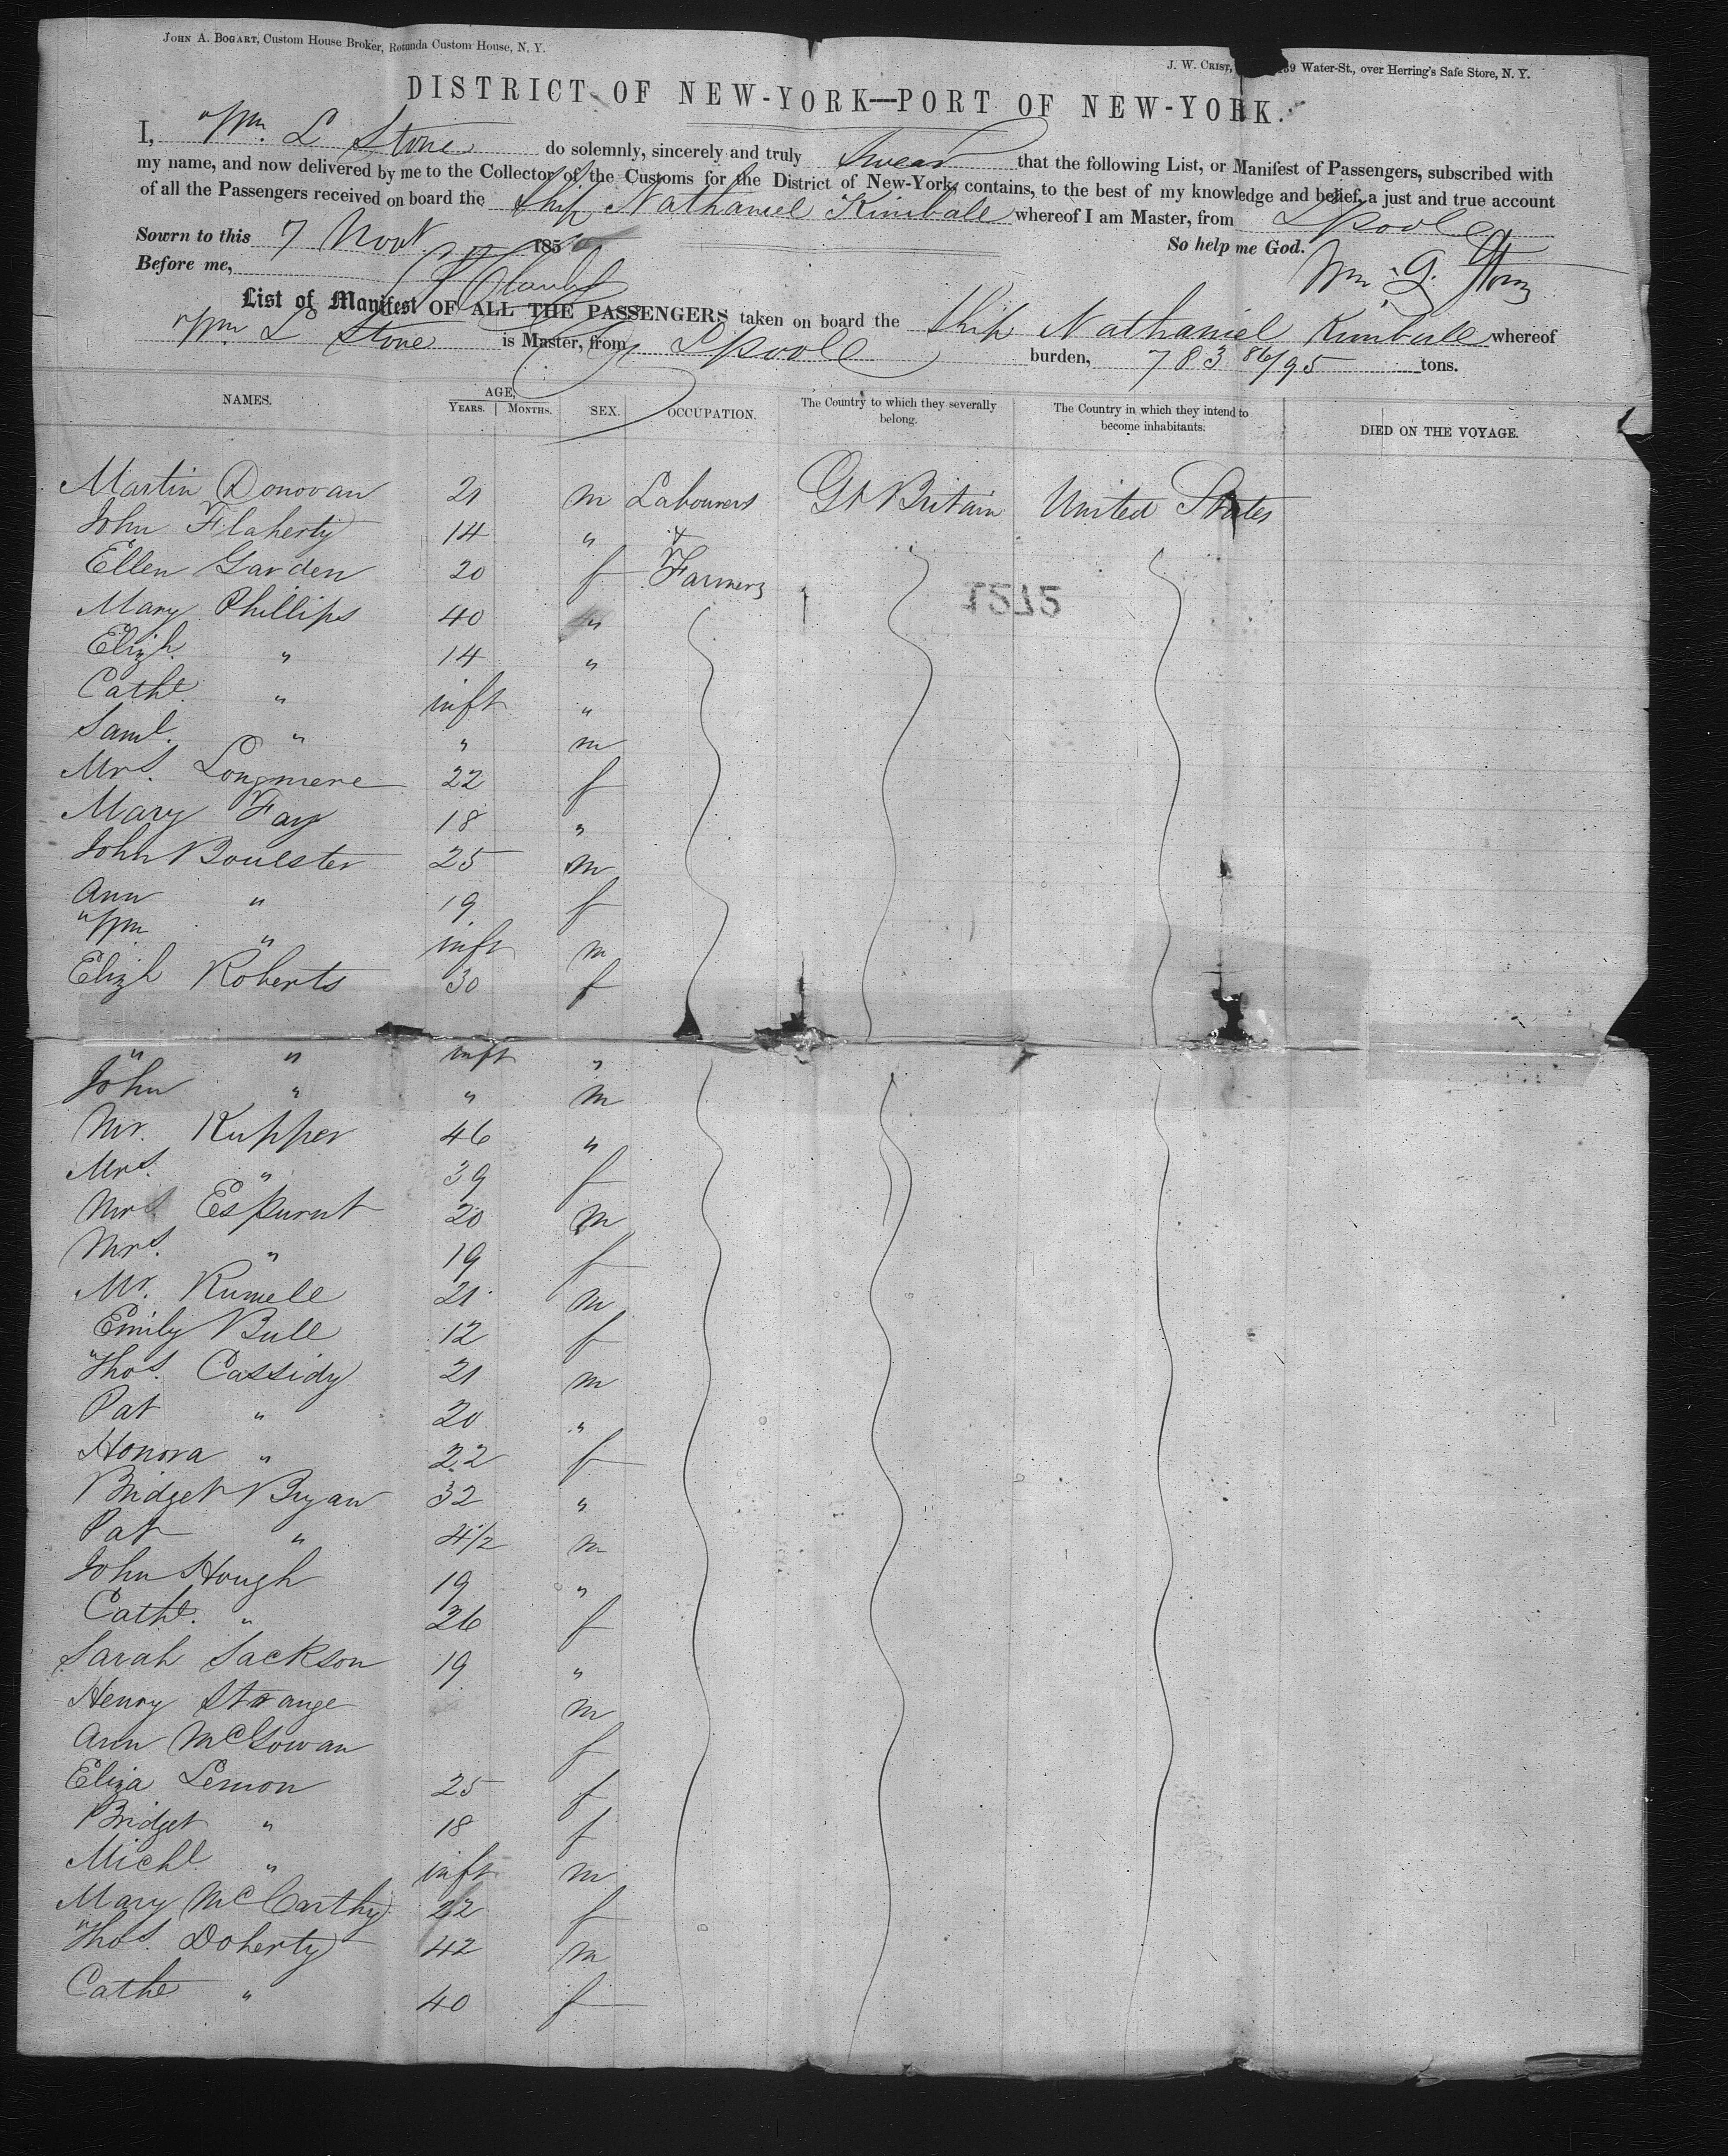 JOHN A. BOGART, Custom House Broker, Rotunda Custom House, N. Y.
J. W. CRIST, 139 Water-St., over Herring's Safe Store, N. Y.
DISTRICT OF NEW-YORK—PORT OF NEW-YORK.
I, Wm. L Stone do solemnly, sincerely and truly Swear that the following List, or Manifest of Passengers, subscribed with
my name, and now delivered by me to the Collector of the Customs for the District of New-York, contains, to the best of my knowledge and belief, a just and true account
of all the Passengers received on board the Ship Nathaniel Kimball whereof I am Master, from Lpool
Sowrn to this 7 Novr. 185
So help me God.
Before me,
List of Manifest OF ALL THE PASSENGERS taken on board the Ship Nathaniel Kimball whereof
Wm L Stone is Master, from Lpool burden, 783 86/95 tons.
NAMES. AGE, YEARS. | MONTHS. SEX. OCCUPATION. The Country to which they severally belong. The Country in which they intend to become inhabitants. DIED ON THE VOYAGE.
Martin Donovan 21 m Labourers Gt Britain United States
John Flaherty 14 " &
Ellen Garden 20 f Farmers
Mary Phillips 40 "
Elizh. " 14 "
Cathe. " inft "
Saml. " " m
Mrs. Longmere 22 f
Mary Fay 18 "
John Boulster 25 m
Ann " 19 f
Wm " inft m
Elizh Roberts 30 f
" " inft "
John " " m
Mr. Kupper 46 "
Mrs. " 39 f
Mr Espurnt 20 m
Mrs. " 19 f
Mr. Rumell 21 m
Emily Bull 12 f
Thos. Cassidy 21 m
Pat " 20 "
Honora " 22 f
Bridget Bryan 32 "
Pat " 4½ m
John Hough 19 "
Cathe. " 26 f
Sarah Jackson 19 "
Henry Strange m
Ann McGowan f
Eliza Lemon 25 f
Bridget " 18 f
Michl. " inft m
Mary McCarthy 22 f
Thos. Doherty 42 m
Cathe " 40 f